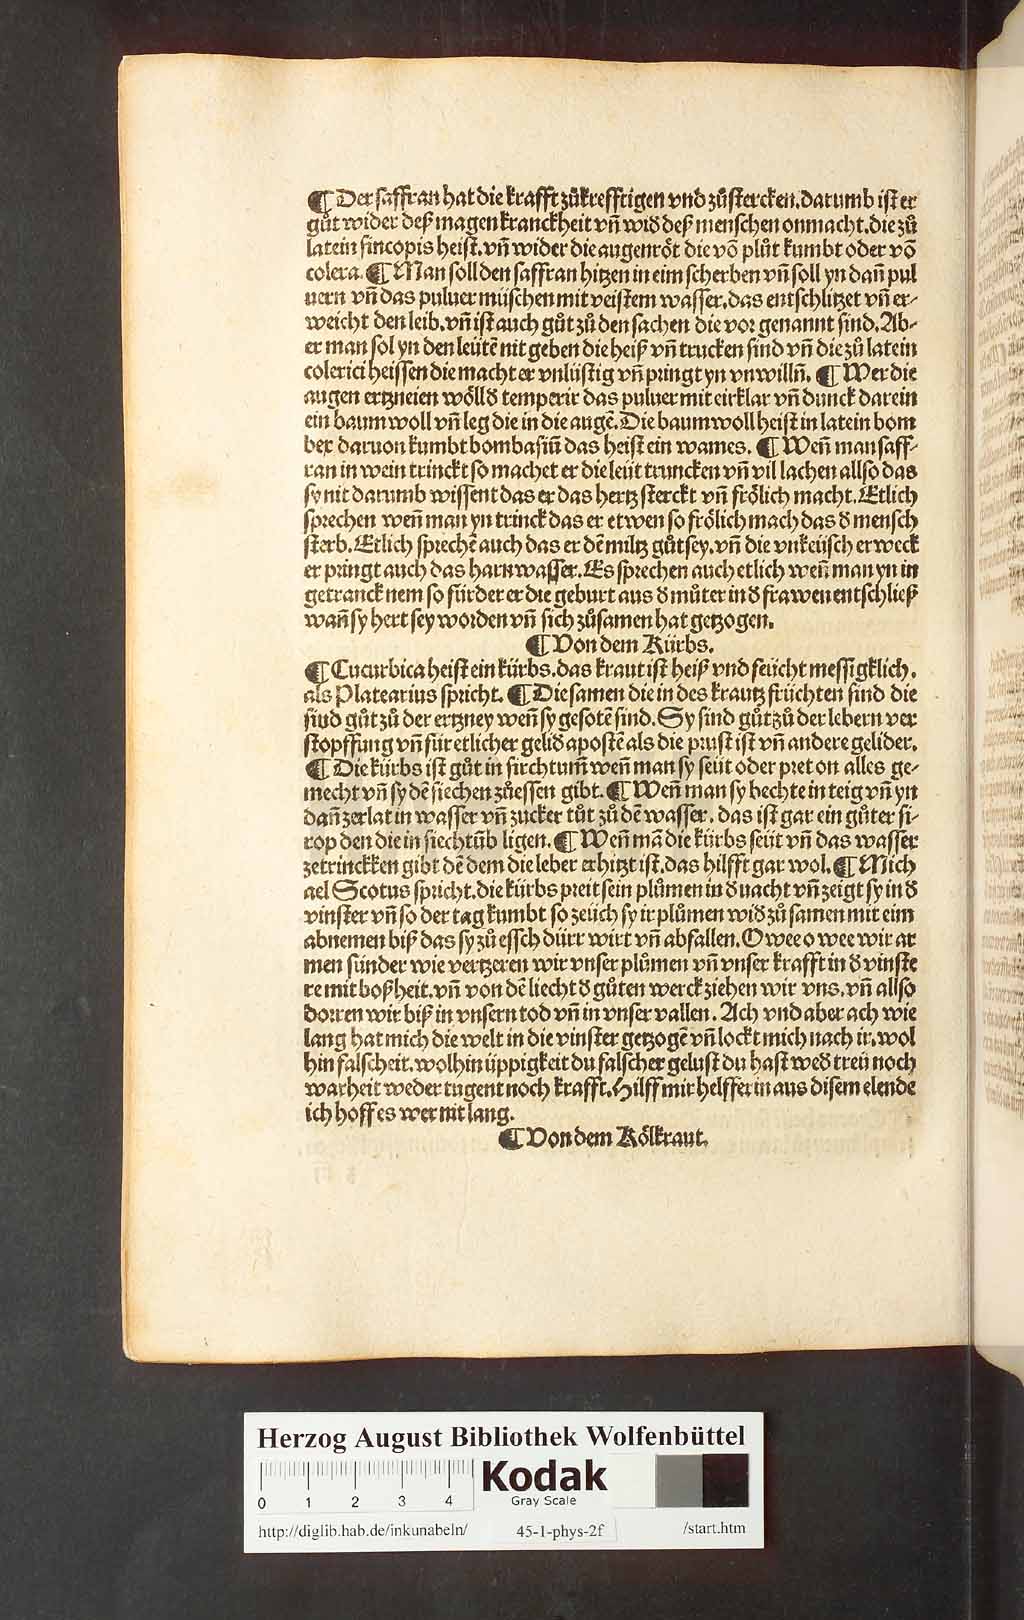 ¶ Der saffran hat die krafft zůkrefftigen vnd zůstercken. darumb ist er
gůt wider deß magen kranckheit vñ wid deß menschen onmacht. die zů
latein sincopis heist. vñ wider die augenröt die võ plůt kumbt oder võ
colera. ¶ Man soll den saffran hitzen in eim scherben vñ soll yn dañ pul
uern vñ das puluer müschen mit veistem wasser. das entschlitzet vñ er-
weicht den leib. vñ ist auch gůt zů den sachen die vor genannt sind. Ab-
er man sol yn den leütẽ nit geben die heiß vñ trucken sind vñ die zů latein
colerici heissen die macht er vnlüstig vñ pringt yn vnwilln̄. ¶ Wer die
augen ertzneien wölld temperir das puluer mit eirklar vñ dunck darein
ein baumwoll vñ leg die in die augẽ. Die baumwoll heist in latein bom
bex daruon kumbt bombasiũ das heist ein wames. ¶ Weñ man saff-
ran in wein trinckt so machet er die leüt truncken vñ vil lachen allso das
sy nit darumb wissent das er das hertz sterckt vñ frölich macht. Etlich
sprechen weñ man yn trinck das er etwen so frölich mach das d mensch
sterb. Etlich sprechẽ auch das er dẽ miltz gůt sey. vñ die vnkeüsch erweck
er pringt auch das harnwasser. Es sprechen auch etlich weñ man yn in
getranck nem so fürder er die geburt aus d můter in d frawen entschließ
wañ sy hert sey worden vñ sich zůsamen hat getzogen.
¶ Von dem Kürbs.
¶ Cucurbica heist ein kürbs. das kraut ist heiß vnd feücht messigklich.
als Platearius spricht. ¶ Die samen die in des krautz früchten sind die
sind gůt zů der ertzney weñ sy gesotẽ sind. Sy sind gůt zů der lebern ver
stopffung vñ für etlicher gelid apostẽ als die prust ist vñ andere gelider.
¶ Die kürbs ist gůt in sirchtum̄ weñ man sy seüt oder pret on alles ge-
mecht vñ sy dẽ siechen zůessen gibt. ¶ Weñ man sy hechte in teig vñ yn
dañ zerlat in wasser vñ zucker tůt zů dẽ wasser. das ist gar ein gůter si-
rop den die in siechtũb ligen. ¶ Weñ mã die kürbs seüt vñ das wasser
zetrinckken gibt dẽ dem die leber erhitzt ist. das hilfft gar wol. ¶ Mich
ael Scotus spricht. die kürbs preit sein plůmen in d nacht vñ zeigt sy in d
vinster vñ so der tag kumbt so zeüch sy ir plůmen wid zů samen mit eim
abnemen biß das sy zů essch dürr wirt vñ abfallen. O wee o wee wir ar
men sünder wie vertzeren wir vnser plůmen vñ vnser krafft in d vinste
re mit boßheit. vñ von dẽ liecht d gůten werck ziehen wir vns. vñ allso
dorren wir biß in vnsern tod vñ in vnser vallen. Ach vnd aber ach wie
lang hat mich die welt in die vinster getzogẽ vñ lockt mich nach ir. wol
hin falscheit. wolhin üppigkeit du falscher gelust du hast wed treü noch
warheit weder tugent noch krafft. Hilff mir helfferin aus disem elende
ich hoff es wer nit lang.
¶ Von dem Kölkraut.
Herzog August Bibliothek Wolfenbüttel
Kodak
Gray Scale
0 1 2 3 4
http://diglib.hab.de/inkunabeln/ 45-1-phys-2f /start.htm